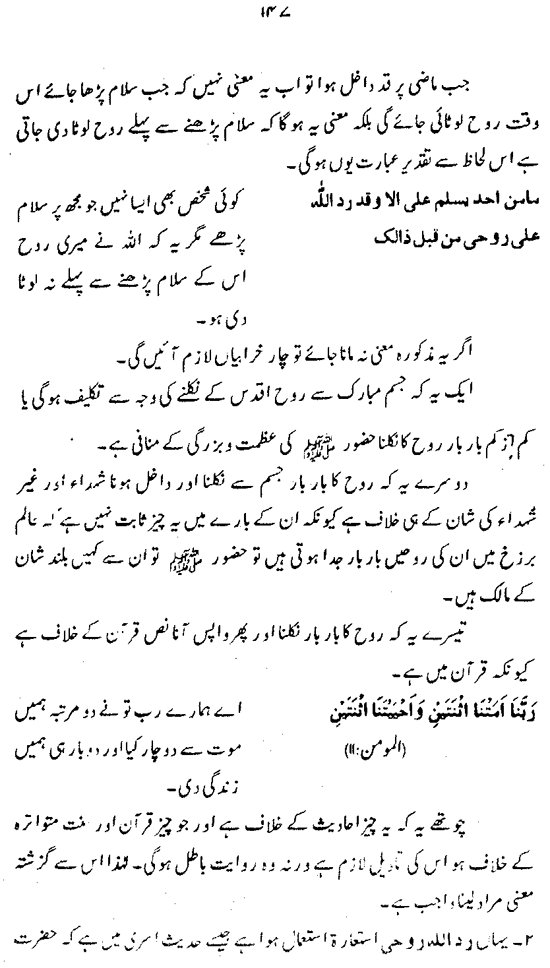 ۱۴۷
جب ماضی پر قد داخل ہوا تو اب یہ معنی نہیں کہ جب سلام پڑھا جائے اس
وقت روح لوٹائی جائے گی بلکہ معنی یہ ہوگا کہ سلام پڑھنے سے پہلے روح لوٹا دی جاتی
ہے اس لحاظ سے تقدیر عبارت یوں ہوگی۔
مامن احد یسلم علی الا وقد رد اللہ
علی روحی من قبل ذالک
کوئی شخص بھی ایسا نہیں جو مجھ پر سلام
پڑھے مگر یہ کہ اللہ نے میری روح
اس کے سلام پڑھنے سے پہلے نہ لوٹا
دی ہو۔
اگر یہ مذکورہ معنی نہ مانا جائے تو چار خرابیاں لازم آئیں گی۔
ایک یہ کہ جسم مبارک سے روح اقدس کے نکلنے کی وجہ سے تکلیف ہوگی یا
کم از کم بار بار روح کا نکلنا حضور ﷺ کی عظمت و بزرگی کے منافی ہے۔
دوسرے یہ کہ روح کا بار بار جسم سے نکلنا اور داخل ہونا شہداء اور غیر
شہداء کی شان کے ہی خلاف ہے کیونکہ ان کے بارے میں یہ چیز ثابت نہیں ہے کہ عالم
برزخ میں ان کی روحیں بار بار جدا ہوتی ہیں تو حضور ﷺ تو ان سے کہیں بلند شان
کے مالک ہیں۔
تیسرے یہ کہ روح کا بار بار نکلنا اور پھر واپس آنا نص قرآن کے خلاف ہے
کیونکہ قرآن میں ہے۔
رَبَّنَا اَمَتَّنَا اثْنَتَیْنِ وَاَحْیَیْتَنَا اثْنَتَیْنِ
(المومن:۱۱)
اے ہمارے رب تو نے دو مرتبہ ہمیں
موت سے دوچار کیا اور دوبار ہی ہمیں
زندگی دی۔
چوتھے یہ کہ یہ چیز احادیث کے خلاف ہے اور جو چیز قرآن اور سنت متواترہ
کے خلاف ہو اس کی تاویل لازم ہے ورنہ وہ روایت باطل ہوگی۔ لہٰذا اس سے گزشتہ
معنی مراد لینا واجب ہے۔
۲۔ یہاں رد اللہ روحی استعارۃ استعمال ہوا ہے جیسے حدیث اسری میں ہے کہ حضرت